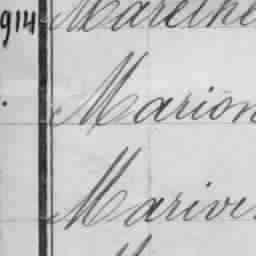 914 Marethe
Marion
Marive